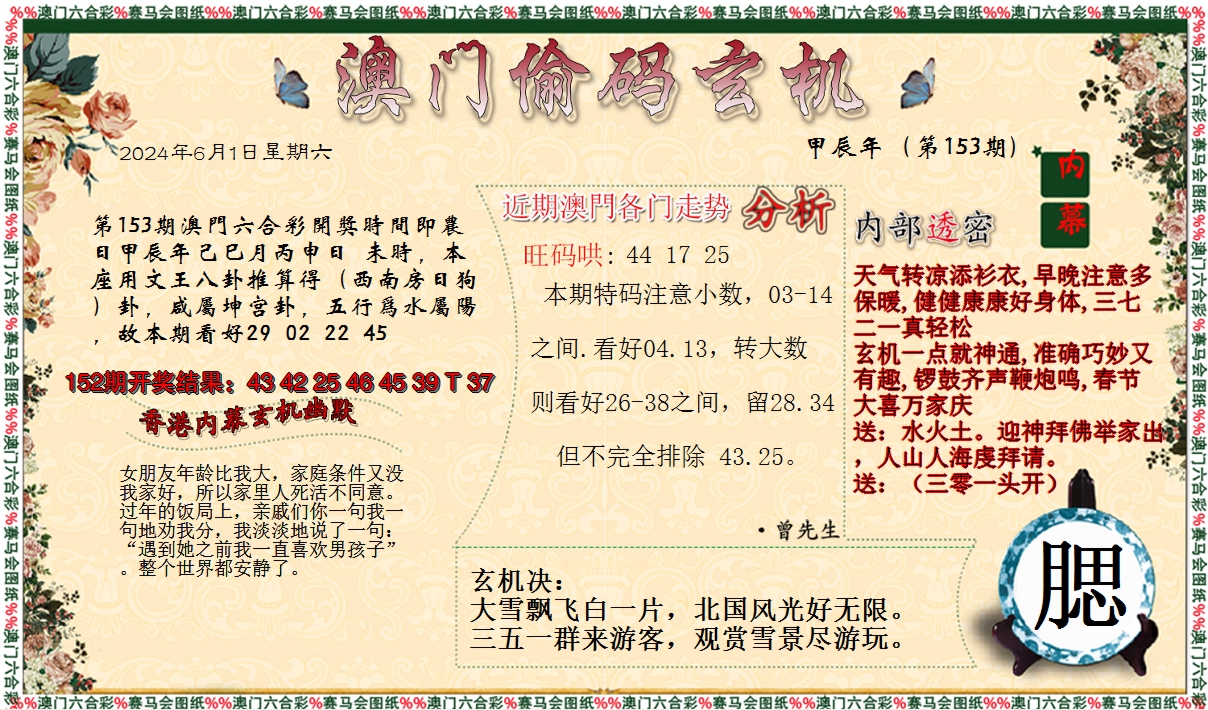 %%澳门六合彩%赛马会图纸%%澳门六合彩%赛马会图纸%%澳门六合彩%赛马会图纸%%澳门六合彩%赛马会图纸%%澳门六合彩%赛马会图纸%%澳门六合彩%赛马会图纸%%
澳门偷码玄机
2024年6月1日星期六
甲辰年（第153期）
内幕
第153期澳門六合彩開獎時間即農
日甲辰年己巳月丙申日 未時，本
座用文王八卦推算得（西南房日狗
）卦，咸屬坤宫卦，五行爲水屬陽
，故本期看好29 02 22 45
152期开奖结果：43 42 25 46 45 39 T 37
香港内幕玄机幽默
女朋友年龄比我大，家庭条件又没
我家好，所以家里人死活不同意。
过年的饭局上，亲戚们你一句我一
句地劝我分，我淡淡地说了一句：
“遇到她之前我一直喜欢男孩子”
。整个世界都安静了。
近期澳門各门走势 分析
旺码哄: 44 17 25
本期特码注意小数，03-14
之间.看好04.13，转大数
则看好26-38之间，留28.34
但不完全排除 43.25。
·曾先生
内部透密
天气转凉添衫衣,早晚注意多
保暖,健健康康好身体,三七
二一真轻松
玄机一点就神通,准确巧妙又
有趣,锣鼓齐声鞭炮鸣,春节
大喜万家庆
送：水火土。迎神拜佛举家出
，人山人海虔拜请。
送：（三零一头开）
玄机决：
大雪飘飞白一片，北国风光好无限。
三五一群来游客，观赏雪景尽游玩。
腮
%%澳门六合彩%赛马会图纸%%澳门六合彩%赛马会图纸%%澳门六合彩%赛马会图纸%%澳门六合彩%赛马会图纸%%澳门六合彩%赛马会图纸%%澳门六合彩%赛马会图纸%%